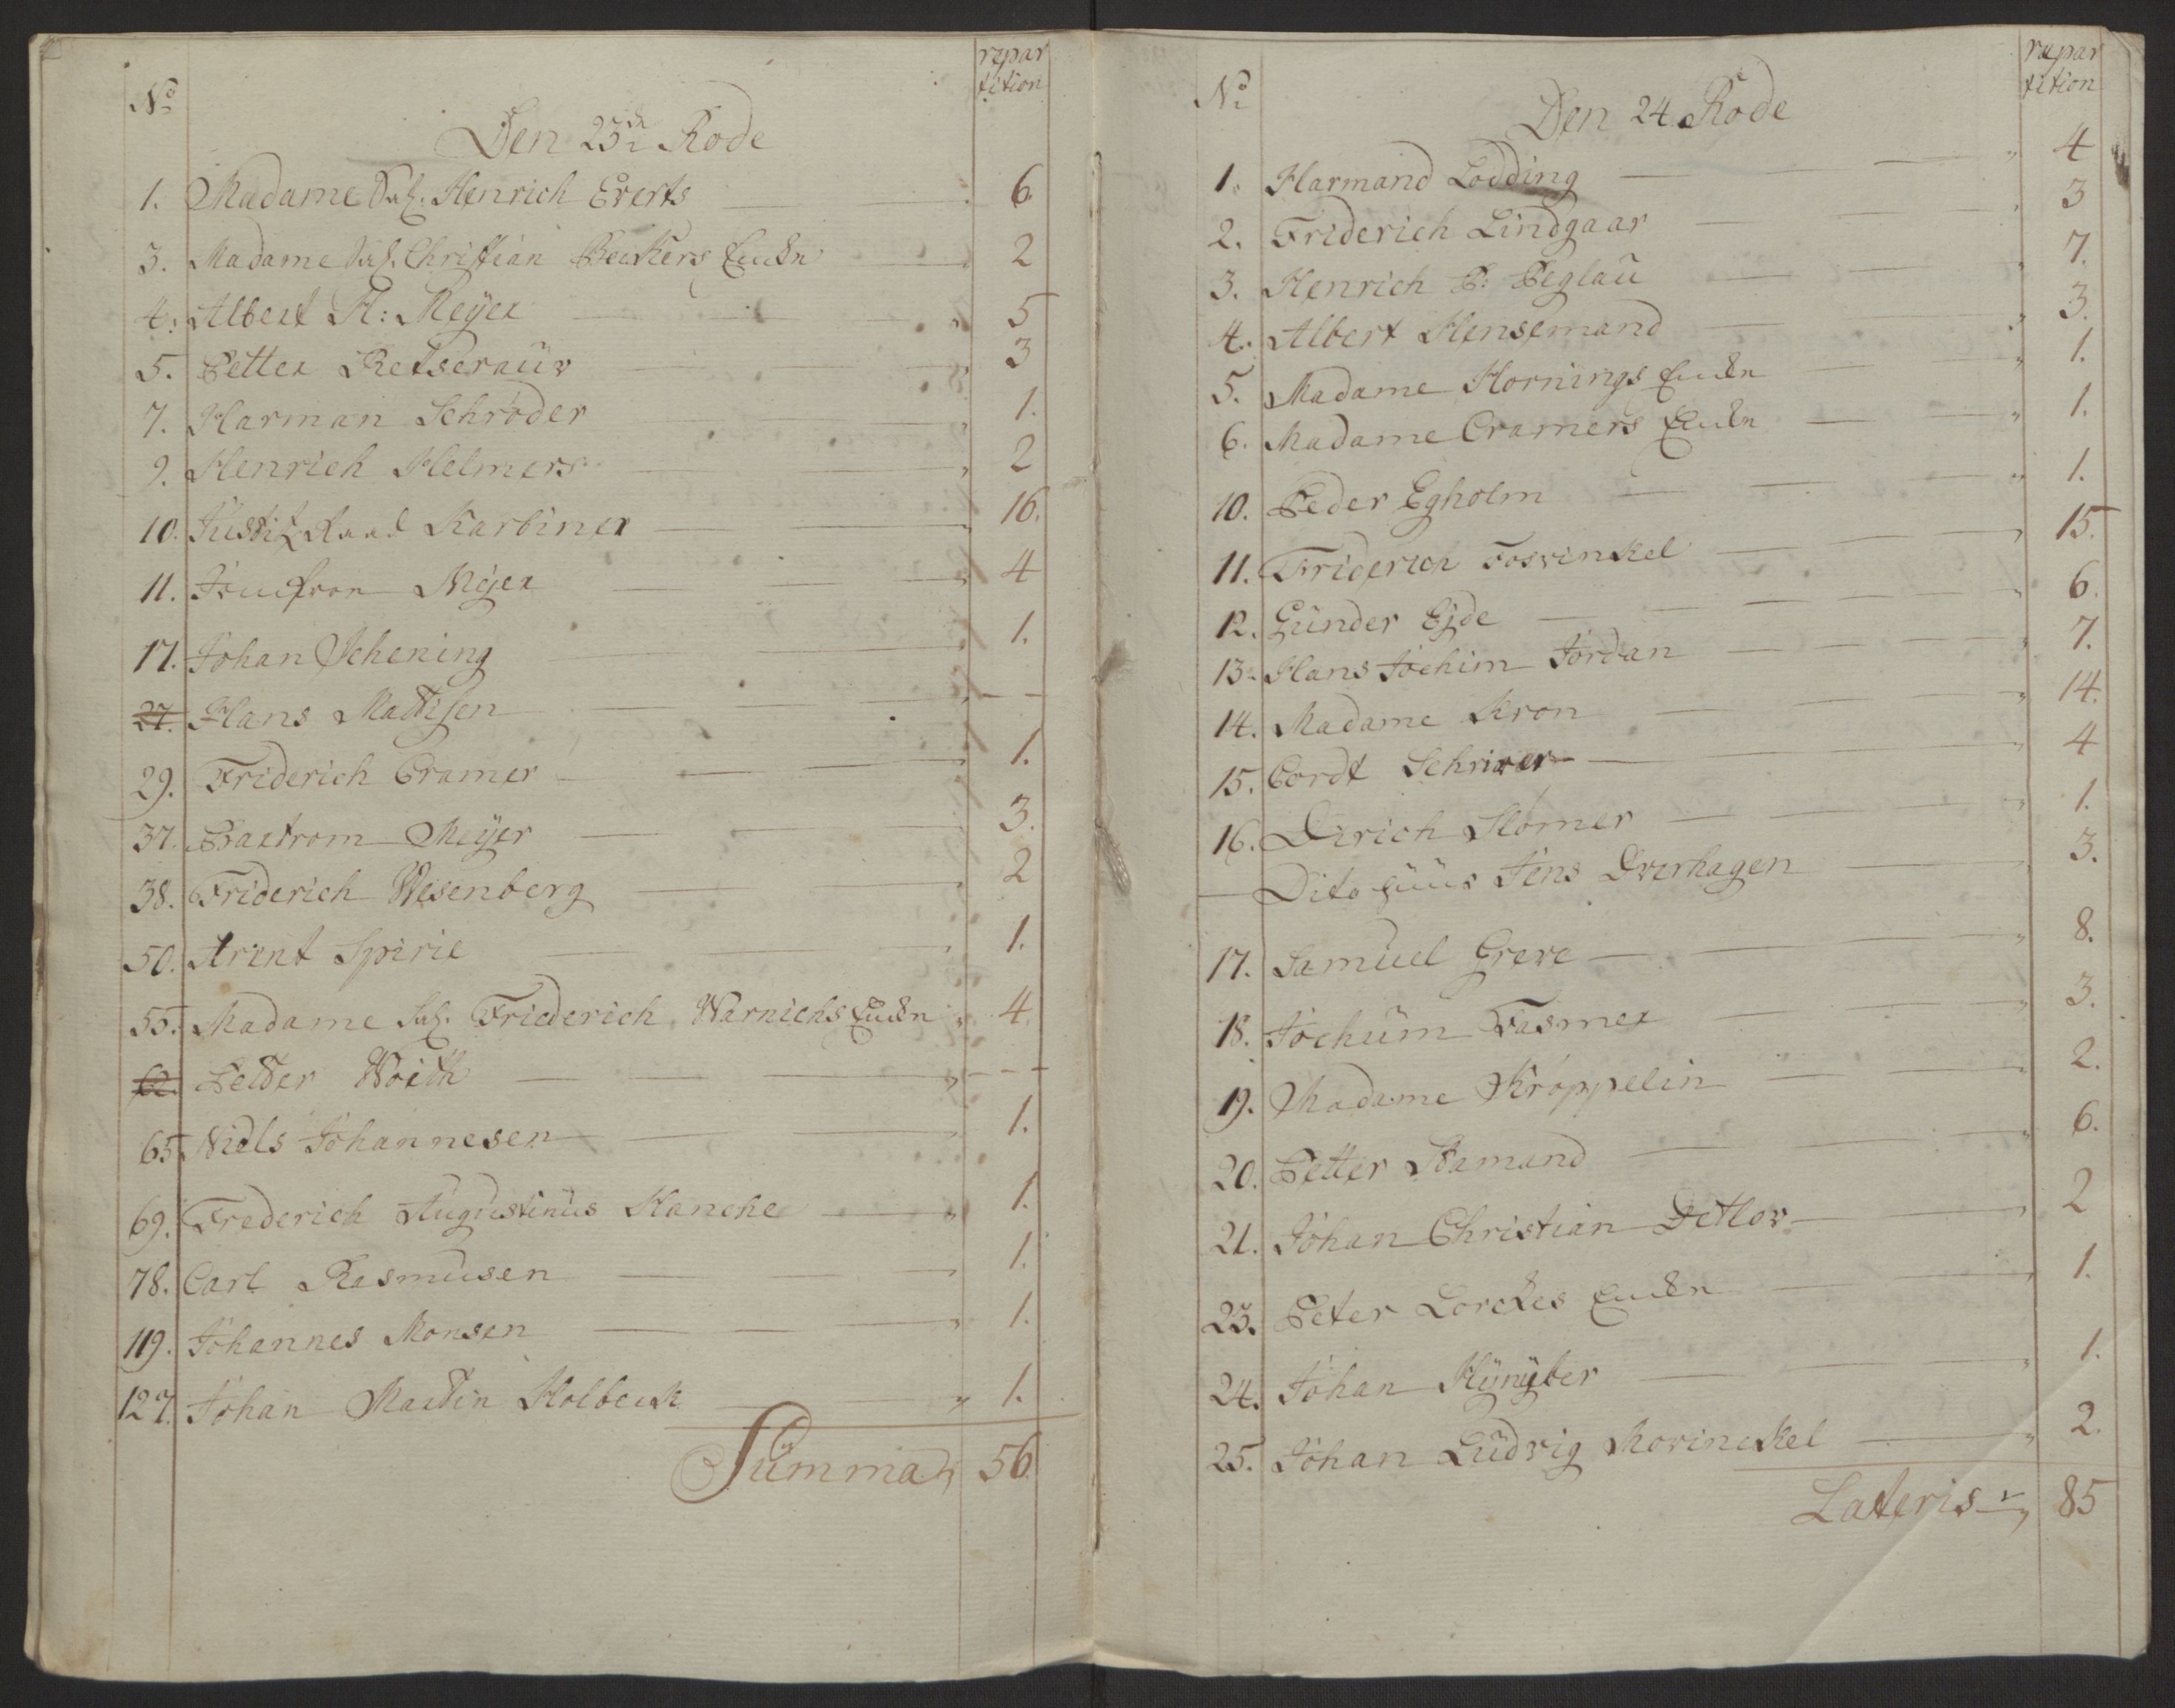 No
Den 23de Rode
repar
tition
1. Madame Sal. Henrich Everts 6
3. Madame Sal. Christian Beckers Encke 2
4. Albert H: Meÿer 5
5. Petter 3
7. Harman Schrøder 1.
9. Henrich Helmers 2
10. Justitz Raad Karbiner 16.
11. Jomfrou Meÿer 4
17. Johan Schening 1.
27. Hans Mattisen - -
29. Friderich Cramer 1.
37. Baxtrom Meÿer 3.
38. Friderich Wesenberg 2
50. Arent Spirie 1.
55. Madame Sal. Friederich Warnichs Encke 4.
62. Petter Woith - - -
65 Niels Johannesen 1.
69. Frederich Augustinus Hancke 1.
78. Carl Rasmusen 1.
119. Johannes Monsen 1.
127. Johan Martin Holbeck 1.
Summa 56.
No
Den 24 Rode
repar
tition
1. Harmand Lodding 4
2. Friderich Lindgaar 3
3. Henrich P: Peglau 7.
4. Albert Hensemand 3.
5. Madame Hornings Encke 1.
6. Madame Cramers Encke 1.
10. Peder Egholm 1.
11. Friderich Fosvinkel 15.
12. Günder Ejde 6.
13. Hans Jochim Jordan 7.
14. Madame Kron 14.
15. Cordt Schriver 4
16. Dirich Slømer 1.
— Dito Huus Jens Overhagen 3.
17. Samuel Greve 8.
18. Jochum Fasmer 3.
19. Madame Krøppelin 2.
20. Petter Stamand 6.
21. Johan Christian Detlov 2
23. Peter Lorckes Encke 1.
24. Johan 1.
25. Johan Ludvig Morinckel 2.
Lateris 85